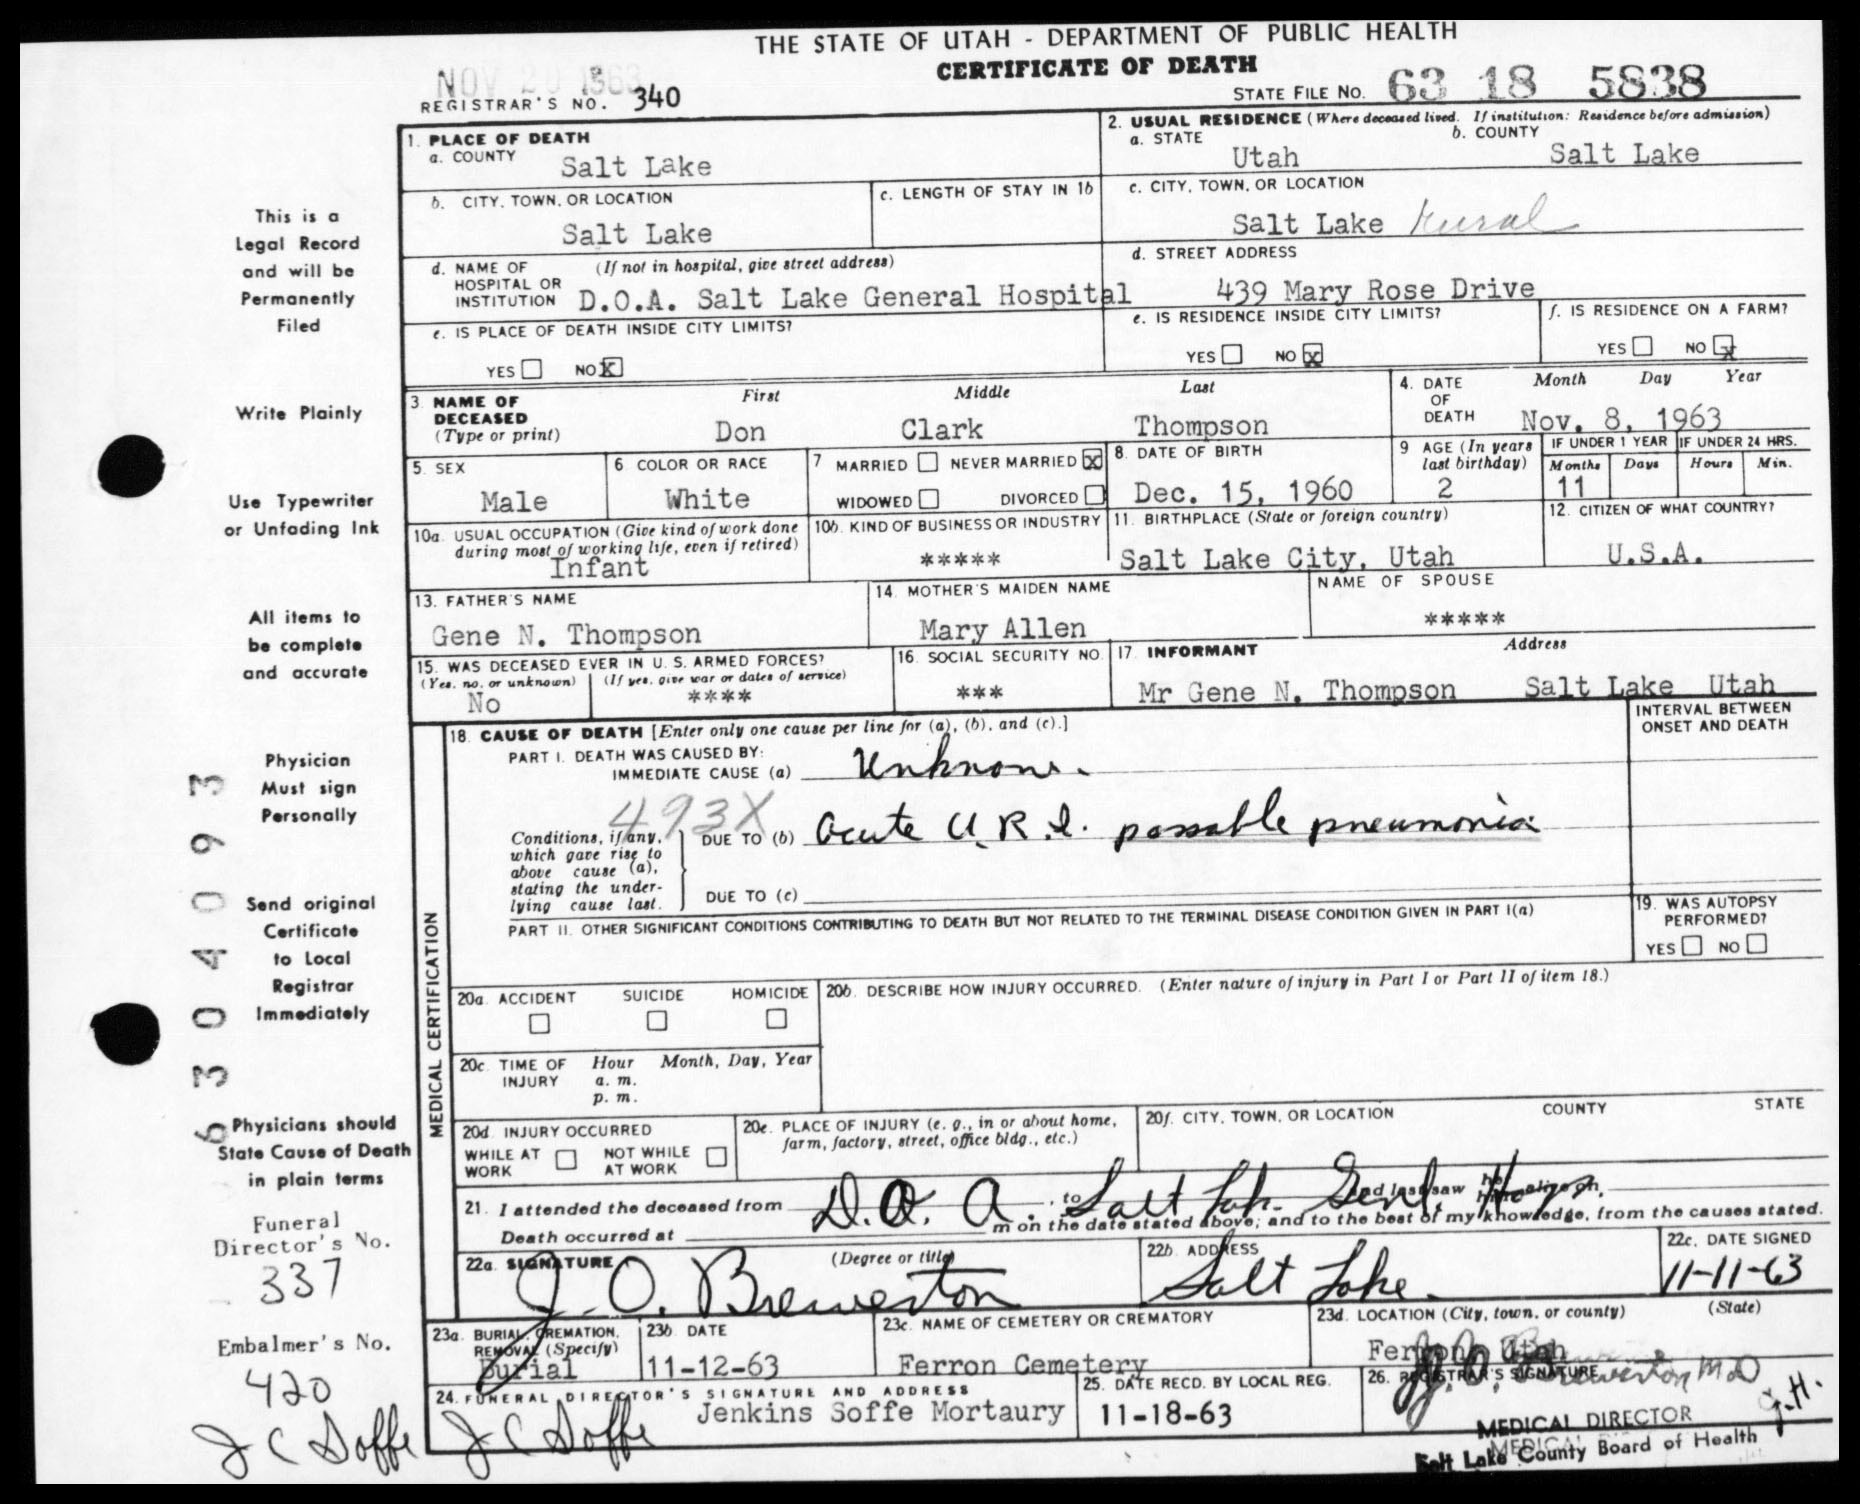 THE STATE OF UTAH - DEPARTMENT OF PUBLIC HEALTH
CERTIFICATE OF DEATH
NOV 20 1963
REGISTRAR'S NO. 340
STATE FILE NO. 63 18 5838
1. PLACE OF DEATH
a. COUNTY Salt Lake
2. USUAL RESIDENCE (Where deceased lived. If institution: Residence before admission)
a. STATE Utah b. COUNTY Salt Lake
b. CITY, TOWN, OR LOCATION Salt Lake
c. LENGTH OF STAY IN 1b
c. CITY, TOWN, OR LOCATION Salt Lake rural
d. NAME OF HOSPITAL OR INSTITUTION (If not in hospital, give street address) D.O.A. Salt Lake General Hospital
d. STREET ADDRESS 439 Mary Rose Drive
e. IS PLACE OF DEATH INSIDE CITY LIMITS?
YES NO X
e. IS RESIDENCE INSIDE CITY LIMITS?
YES NO X
f. IS RESIDENCE ON A FARM?
YES NO X
3. NAME OF DECEASED (Type or print)
First Middle Last
Don Clark Thompson
4. DATE OF DEATH Month Day Year
Nov. 8, 1963
5. SEX Male
6. COLOR OR RACE White
7 MARRIED NEVER MARRIED X
WIDOWED DIVORCED
8. DATE OF BIRTH Dec. 15, 1960
9 AGE (In years last birthday) 2
IF UNDER 1 YEAR IF UNDER 24 HRS.
Months Days Hours Min.
11
10a. USUAL OCCUPATION (Give kind of work done during most of working life, even if retired)
Infant
10b. KIND OF BUSINESS OR INDUSTRY
*****
11. BIRTHPLACE (State or foreign country)
Salt Lake City, Utah
12. CITIZEN OF WHAT COUNTRY?
U.S.A.
13. FATHER'S NAME
Gene N. Thompson
14. MOTHER'S MAIDEN NAME
Mary Allen
NAME OF SPOUSE
*****
15. WAS DECEASED EVER IN U. S. ARMED FORCES?
(Yes, no, or unknown) (If yes, give war or dates of service)
No ****
16. SOCIAL SECURITY NO.
***
17. INFORMANT Address
Mr Gene N. Thompson Salt Lake Utah
18. CAUSE OF DEATH [Enter only one cause per line for (a), (b), and (c).]
INTERVAL BETWEEN ONSET AND DEATH
PART I. DEATH WAS CAUSED BY:
IMMEDIATE CAUSE (a) Unknown.
493X
Conditions, if any, which gave rise to above cause (a), stating the underlying cause last.
DUE TO (b) Acute U.R.I. possable pneumonia
DUE TO (c)
PART II. OTHER SIGNIFICANT CONDITIONS CONTRIBUTING TO DEATH BUT NOT RELATED TO THE TERMINAL DISEASE CONDITION GIVEN IN PART I(a)
19. WAS AUTOPSY PERFORMED?
YES NO
MEDICAL CERTIFICATION
20a. ACCIDENT SUICIDE HOMICIDE
20b. DESCRIBE HOW INJURY OCCURRED. (Enter nature of injury in Part I or Part II of item 18.)
20c. TIME OF INJURY Hour Month, Day, Year
a. m.
p. m.
20d. INJURY OCCURRED
WHILE AT WORK NOT WHILE AT WORK
20e. PLACE OF INJURY (e. g., in or about home, farm, factory, street, office bldg., etc.)
20f. CITY, TOWN, OR LOCATION COUNTY STATE
21. I attended the deceased from D.O.A. , to Salt Lak. Genl. Hosp. and last saw alive on
Death occurred at m on the date stated above; and to the best of my knowledge, from the causes stated.
22a. SIGNATURE (Degree or title)
J. O. Brewerton
22b. ADDRESS
Salt Lake.
22c. DATE SIGNED
11-11-63
23a. BURIAL, CREMATION, REMOVAL (Specify)
Burial
23b. DATE
11-12-63
23c. NAME OF CEMETERY OR CREMATORY
Ferron Cemetery
23d. LOCATION (City, town, or county) (State)
Ferron, Utah
24. FUNERAL DIRECTOR'S SIGNATURE AND ADDRESS
Jenkins Soffe Mortaury
J C Soffe
25. DATE RECD. BY LOCAL REG.
11-18-63
26. REGISTRAR'S SIGNATURE
J. O. Brewerton M.D
J.H.
MEDICAL DIRECTOR
Salt Lake County Board of Health
This is a
Legal Record
and will be
Permanently
Filed
Write Plainly
Use Typewriter
or Unfading Ink
All items to
be complete
and accurate
Physician
Must sign
Personally
Send original
Certificate
to Local
Registrar
Immediately
Physicians should
State Cause of Death
in plain terms
6304093
Funeral
Director's No.
337
Embalmer's No.
420
J C Soffe